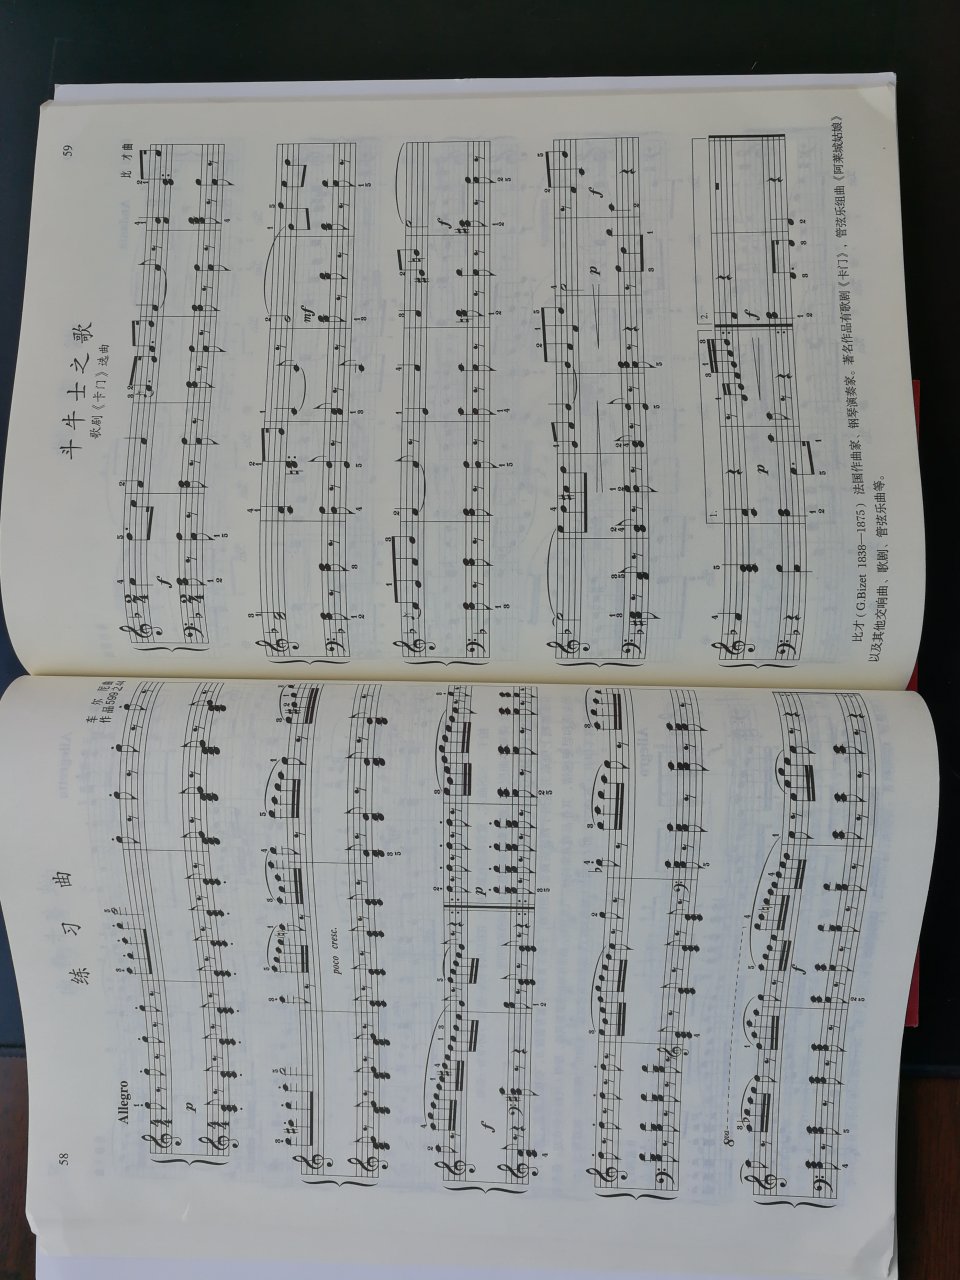 58
练 习 曲
车 尔 尼 曲
作品599 24
Allegro
p
poco cresc.
f
p
8va
f
59
斗 牛 士 之 歌
歌剧《卡门》选曲
比 才 曲
f
mf
f
p
f
1.
p
2.
f
比才(G.Bizet 1838—1875) 法国作曲家、钢琴演奏家。著名作品有歌剧《卡门》, 管弦乐组曲《阿莱城姑娘》
以及其他交响曲、歌剧、管弦乐曲等。